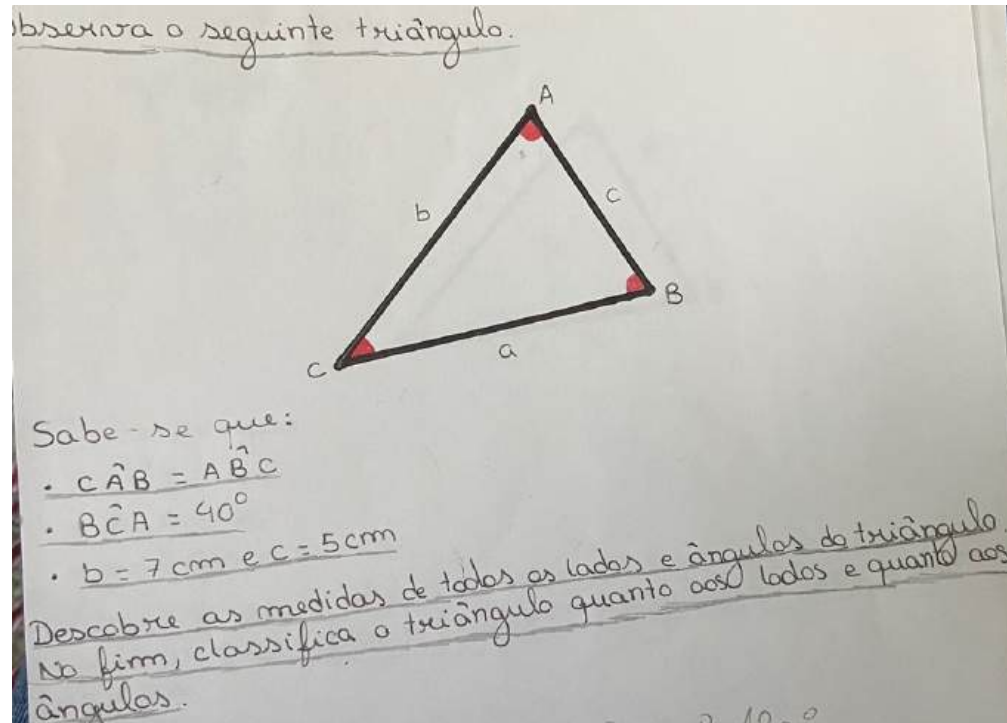 bserva o seguinte triângulo.
A
b
c
B
a
C
Sabe-se que:
. CÂB = AB̂C
. BĈA = 40°
. b = 7 cm e c = 5 cm
Descobre as medidas de todos os lados e ângulos do triângulo
No firm, classifica o triângulo quanto aos lados e quanto aos
ângulos.